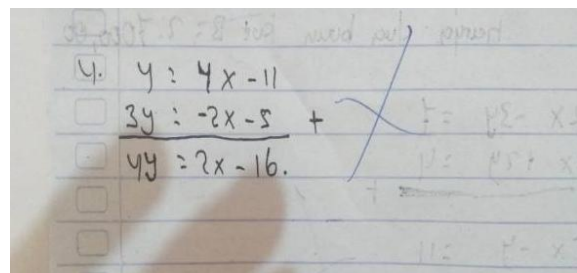 4. y = 4x - 11
3y = -2x - 5 +
4y = 2x - 16.